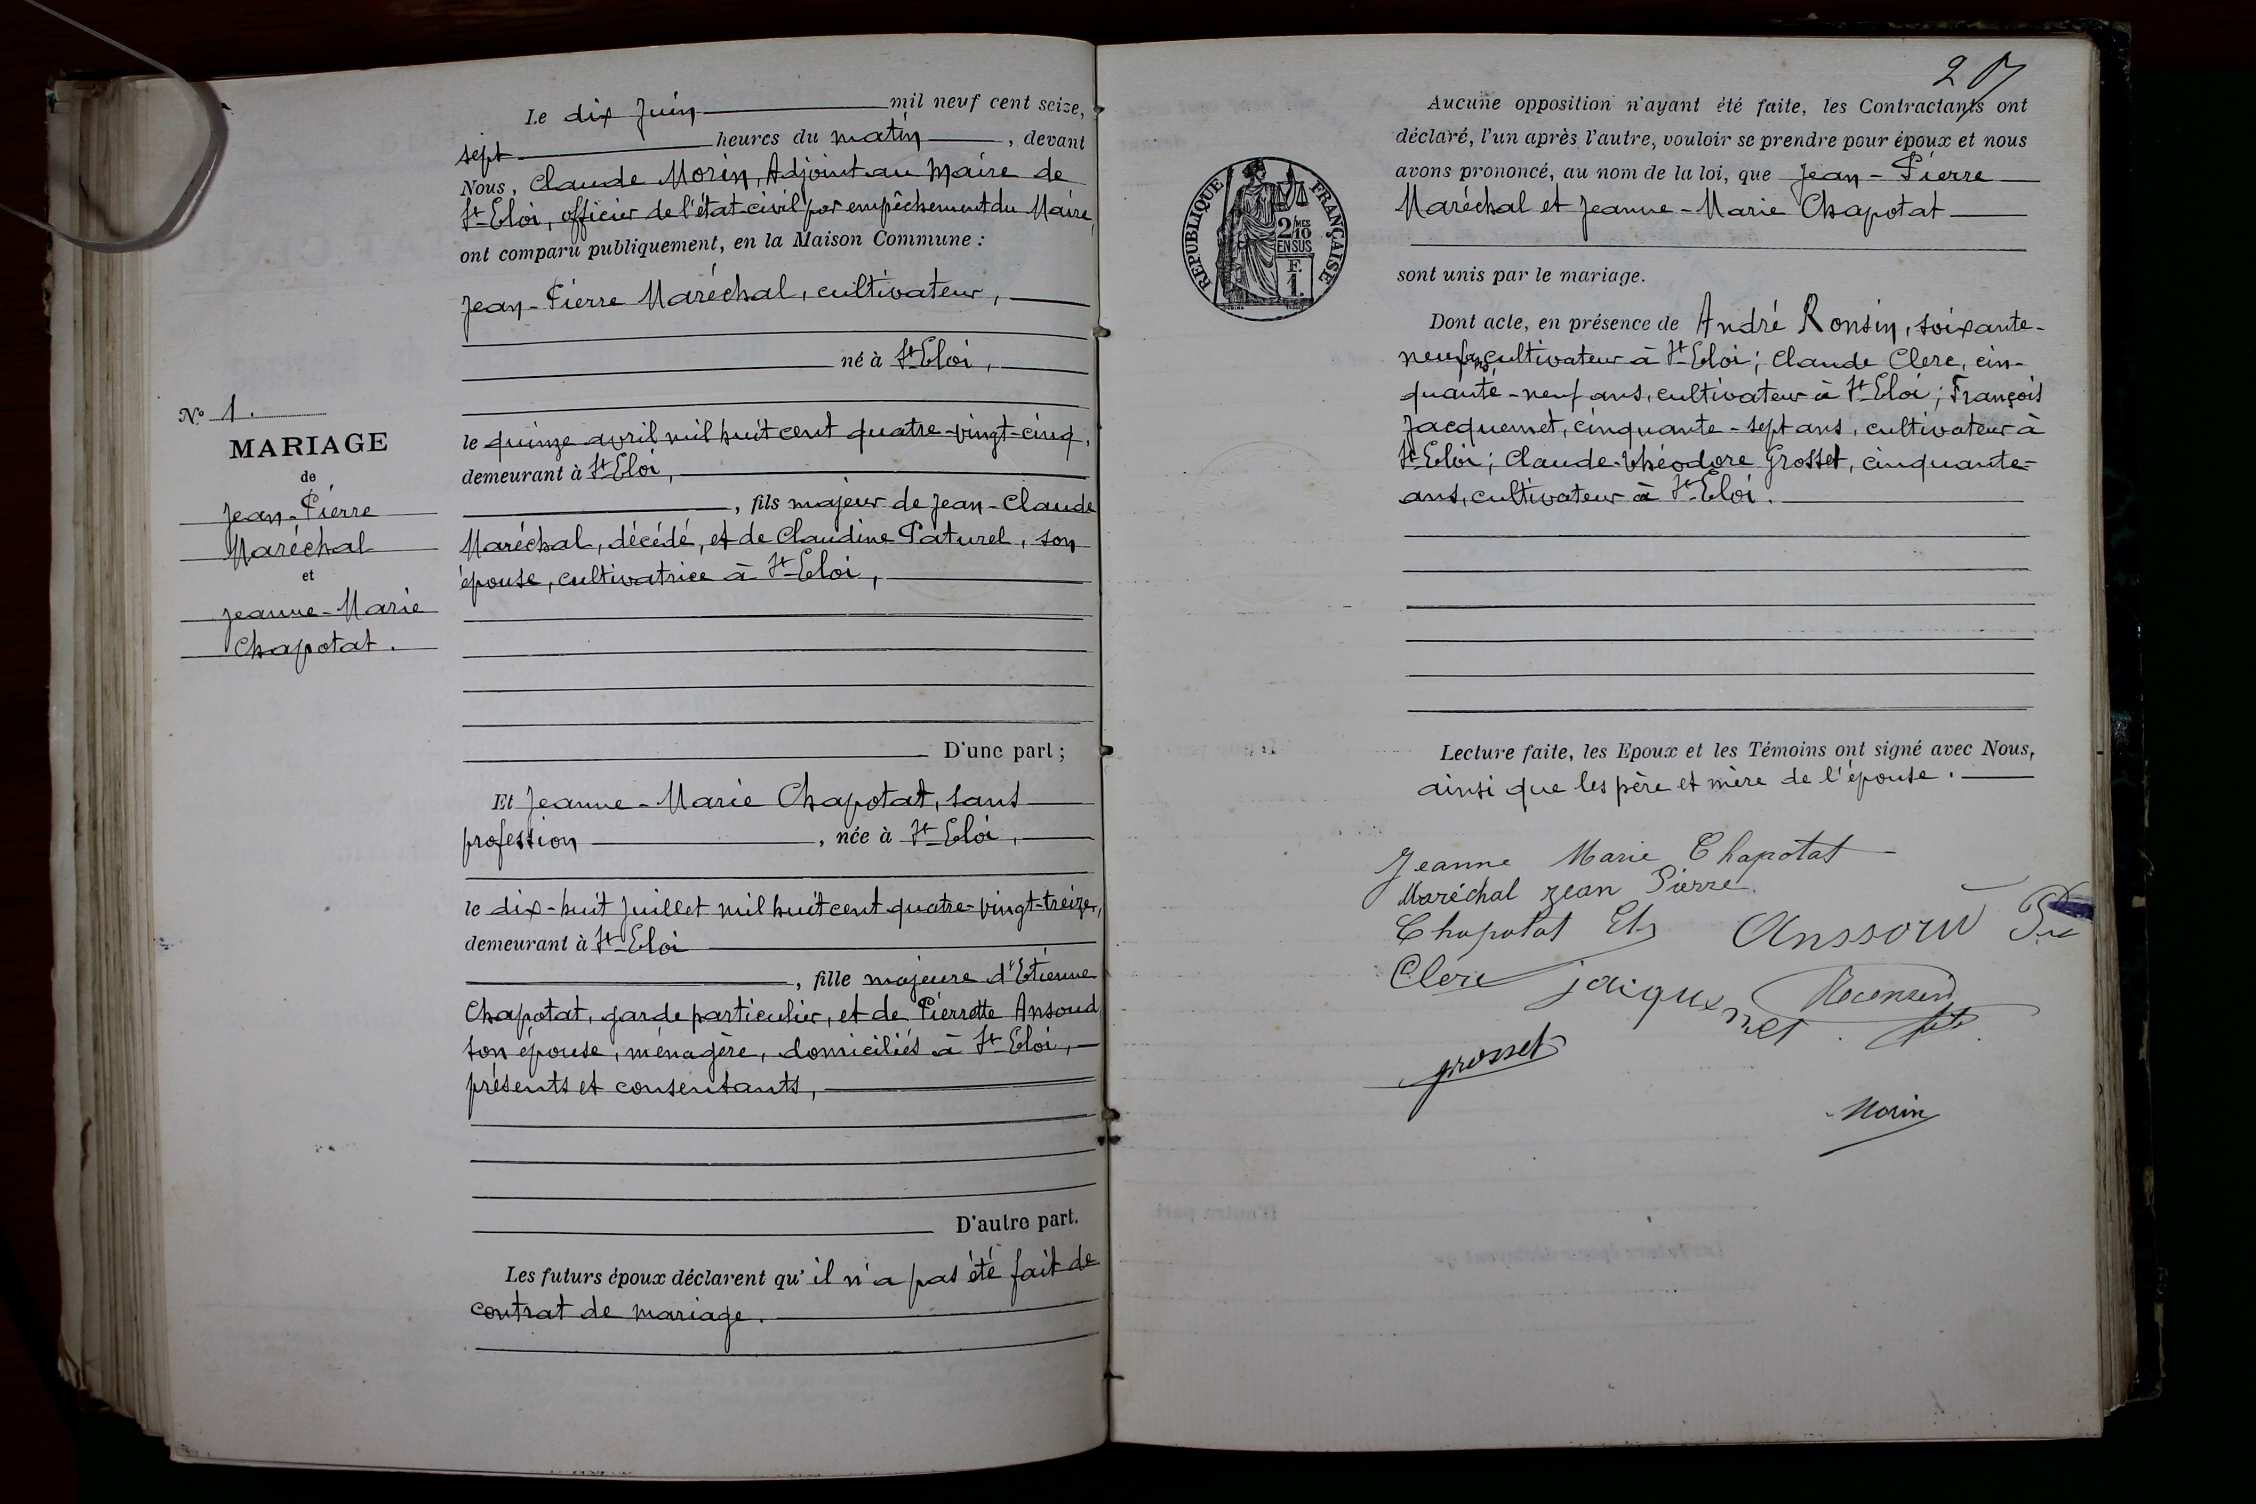 Le dix Juin mil neuf cent seize,
sept heures du matin, devant
Nous, Claude Morin, Adjoint au Maire de
St Eloi, officier de l'état-civil par empêchement du Maire,
ont comparu publiquement, en la Maison Commune :
Jean-Pierre Maréchal, cultivateur,
né à St Eloi,
le quinze avril mil huit cent quatre-vingt-cinq,
demeurant à St Eloi,
, fils majeur de Jean-Claude
Maréchal, décédé, et de Claudine Paturel, son
épouse, cultivatrice à St Eloi,
D'une part ;
Et Jeanne-Marie Chapotat, sans
profession, née à St Eloi,
le dix-huit Juillet mil huit cent quatre-vingt-treize,
demeurant à St Eloi
, fille majeure d'Etienne
Chapotat, garde particulier, et de Pierrette Ansoud
son épouse, ménagère, domiciliés à St Eloi,
présents et consentants,
D'autre part.
Les futurs époux déclarent qu'il n'a pas été fait de
contrat de mariage.
No 1.
MARIAGE
de
Jean-Pierre
Maréchal
et
Jeanne-Marie
Chapotat.
RÉPUBLIQUE FRANÇAISE
2/10
EN SUS
F.
1.
Aucune opposition n'ayant été faite, les Contractants ont
déclaré, l'un après l'autre, vouloir se prendre pour époux et nous
avons prononcé, au nom de la loi, que Jean-Pierre
Maréchal et Jeanne-Marie Chapotat
sont unis par le mariage.
Dont acte, en présence de André Ronsin, soixante-
neuf ans, cultivateur à St Eloi ; Claude Clerc, cin-
quante-neuf ans, cultivateur à St Eloi ; François
Jacquemet, cinquante-sept ans, cultivateur à
St Eloi ; Claude-Théodore Grosset, cinquante-
ans, cultivateur à St Eloi.
Lecture faite, les Epoux et les Témoins ont signé avec Nous,
ainsi que les père et mère de l'épouse.
Jeanne Marie Chapotat
Maréchal Jean Pierre
Chapotat Et Anssoud
Clerc jaiquemet
grosset
Morin